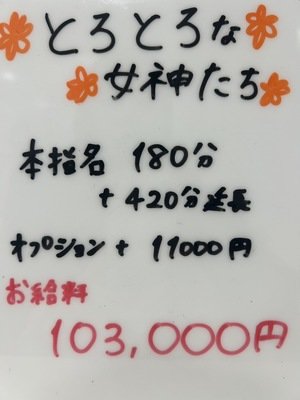 とろとろな
女神たち
本指名 180分
+ 420分延長
オプション + 11000円
お給料
103,000円